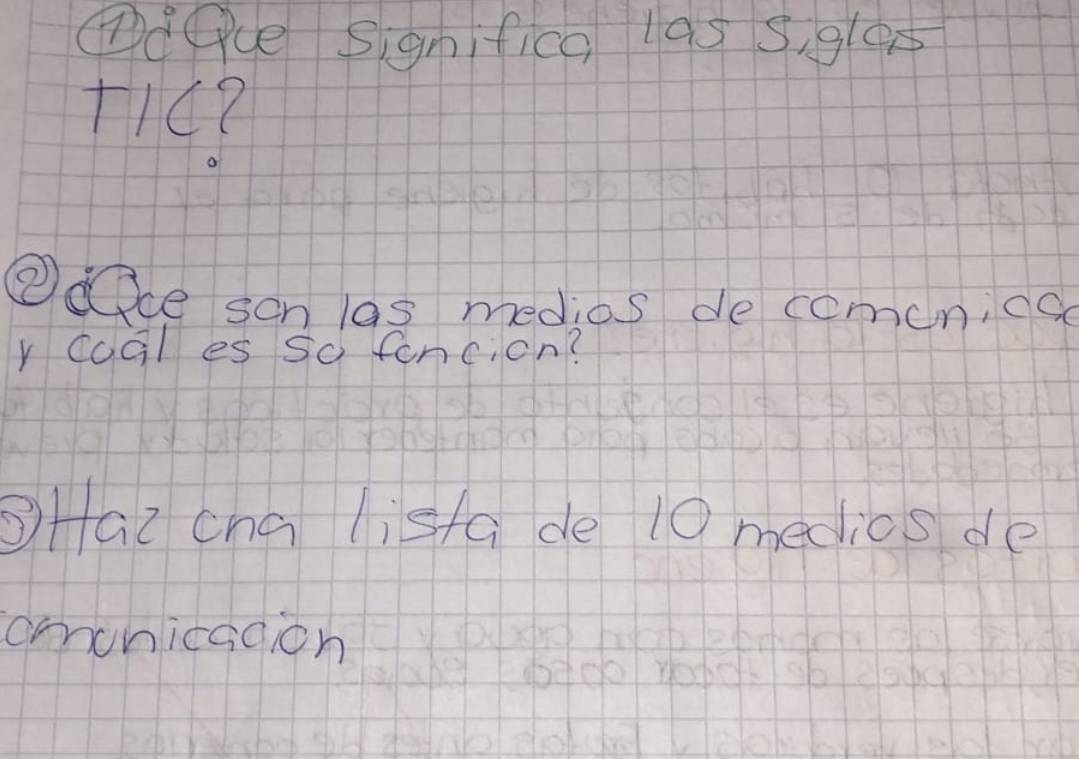 ① ¿Que significa las siglas
TIC?
② ¿Que son los medios de comunica
y cuál es su funcion?
③ Haz una lista de 10 medios de
comunicacion